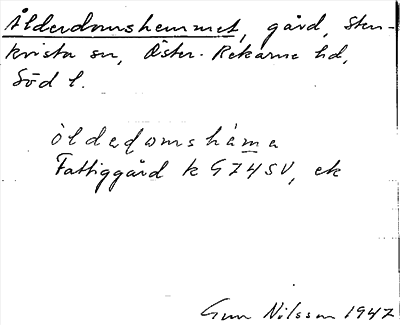 Ålderdomshemmet, gård, Sten-
kvista sn, Öster-Rekarne hd,
Söd l.
òldedomshám̲e
Fattiggård k G74SV, ek
Gun Nilsson 1947